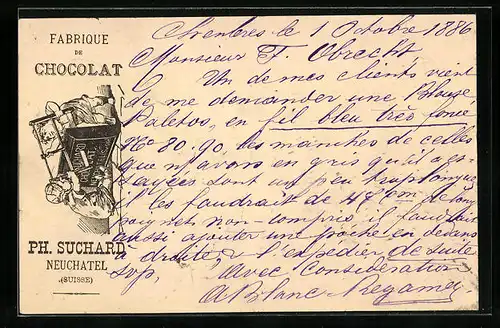 FABRIQUE
DE
CHOCOLAT
PH. SUCHARD
NEUCHATEL
(SUISSE)
le 1 Octobre 1886
Monsieur F. Obrecht,
Un de mes clients vient
de me demander une Blouse
Paletos, en fil bleu très foncé
No 80.90, les manches de celles
que n/ avons en gris qu'il a es-
sayées sont un peu trop longues
il les faudrait de 47 cm de long
poignet non-compris, il faudrait
aussi ajouter une poche en dedans
à droite, l'expédier de suite
svp, Avec Considération
A Blanc